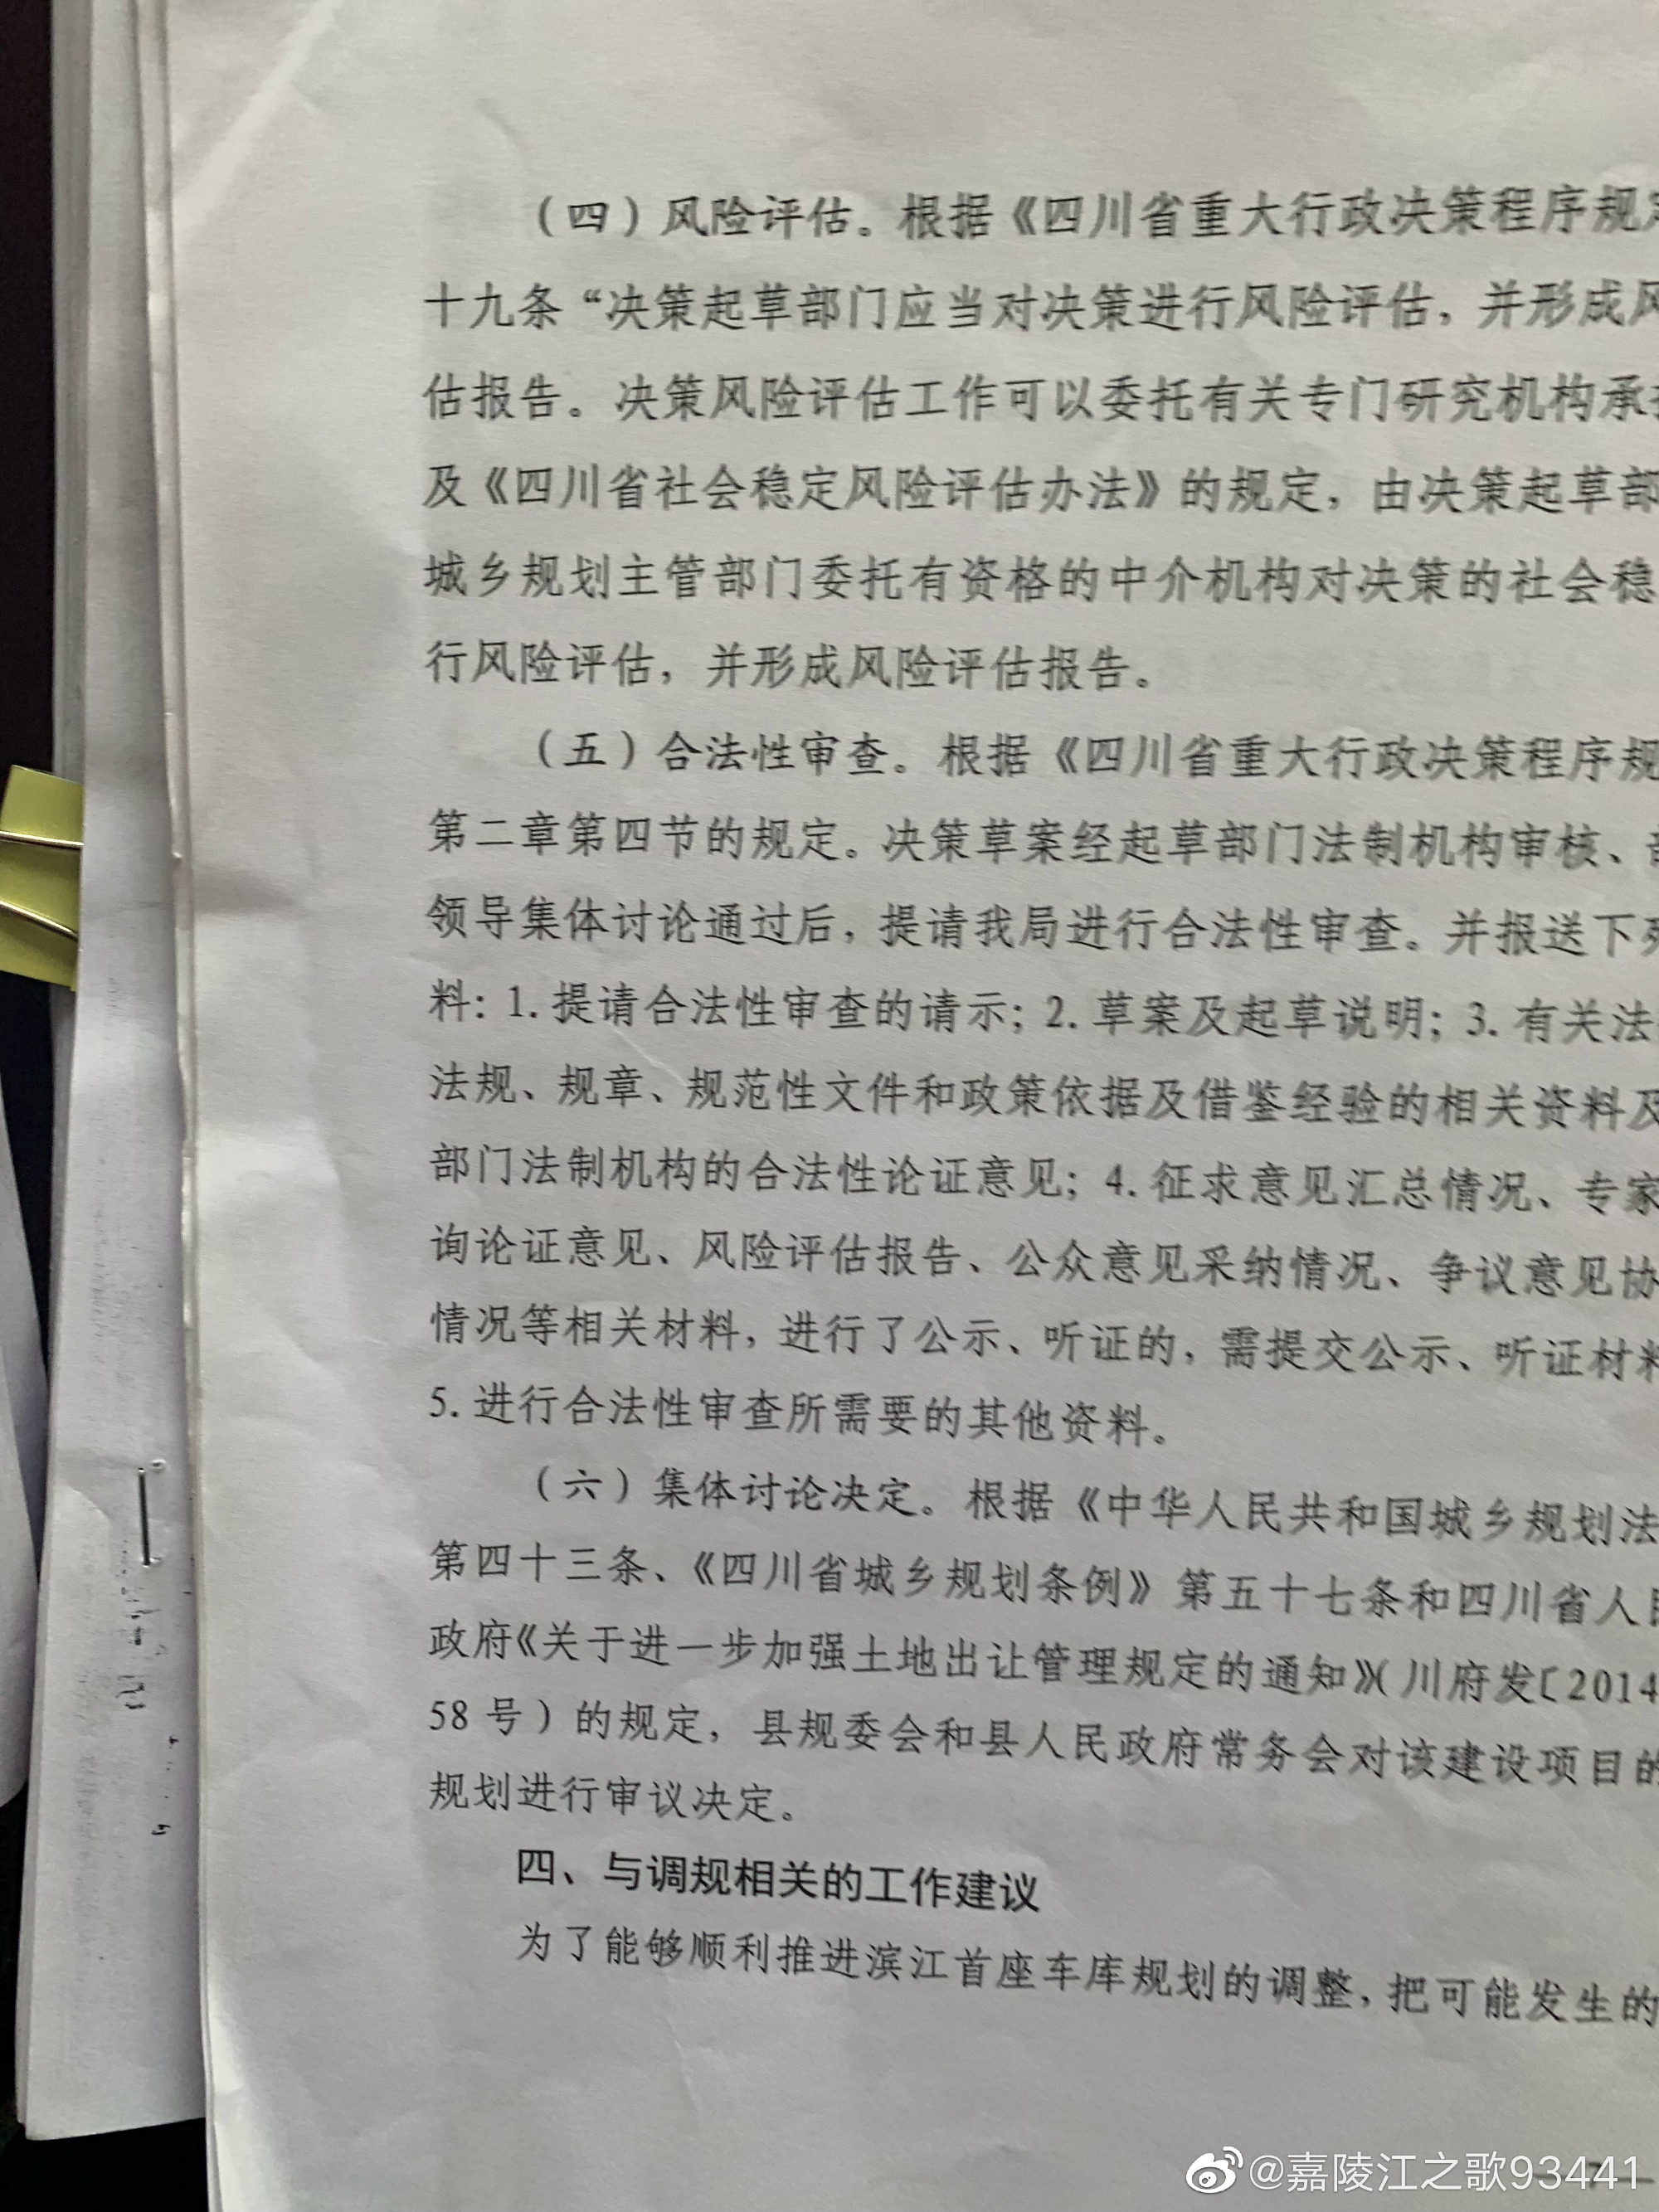 （四）风险评估。根据《四川省重大行政决策程序规定
十九条“决策起草部门应当对决策进行风险评估，并形成风
估报告。决策风险评估工作可以委托有关专门研究机构承
及《四川省社会稳定风险评估办法》的规定，由决策起草部
城乡规划主管部门委托有资格的中介机构对决策的社会稳
行风险评估，并形成风险评估报告。
（五）合法性审查。根据《四川省重大行政决策程序规
第二章第四节的规定。决策草案经起草部门法制机构审核、
领导集体讨论通过后，提请我局进行合法性审查。并报送下列
料：1.提请合法性审查的请示；2.草案及起草说明；3.有关法
法规、规章、规范性文件和政策依据及借鉴经验的相关资料及
部门法制机构的合法性论证意见；4.征求意见汇总情况、专家
询论证意见、风险评估报告、公众意见采纳情况、争议意见协
情况等相关材料，进行了公示、听证的，需提交公示、听证材料
5.进行合法性审查所需要的其他资料。
（六）集体讨论决定。根据《中华人民共和国城乡规划法
第四十三条、《四川省城乡规划条例》第五十七条和四川省人民
政府《关于进一步加强土地出让管理规定的通知》（川府发〔2014
58号）的规定，县规委会和县人民政府常务会对该建设项目的
规划进行审议决定。
四、与调规相关的工作建议
为了能够顺利推进滨江首座车库规划的调整，把可能发生的
@嘉陵江之歌93441